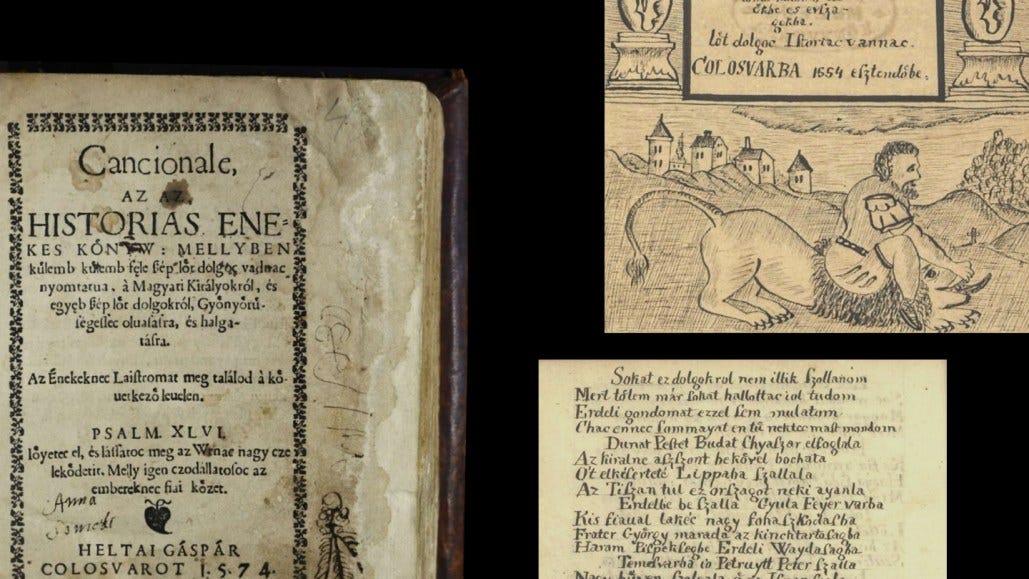 Cancionale,
AZ AZ,
HISTORIAS ENE-
KES KŐNYW: MELLYBEN
kűlemb kűlemb féle ſép lőt dolgoc vadnac
nyomtatua, à Magyari Királyokról, és
egyęb ſép lőt dolgokról, Gyönyőrű-
ſégeſſec oluaſaſra, és halga-
táſra.
Az Énekeknec Laiſtromat meg találod à kö-
uetkező leuelen.
PSALM. XLVI.
Iőyetec el, és láſſatoc meg az Wrnac nagy cze
lekődetit. Melly igen czodállatoſoc az
embereknec fiai közet.
Anna
HELTAI GÁSPÁR
COLOSVAROT 1.5.74.
őkbe es orſza-
gokba.
lőt dolgoc Iſtoriac vannac.
COLOSVARBA 1554 eſztendőbe.
Sokat ez dolgokrol nem illik ſzollanom
Mert tőlem már ſokat hallottac iol tudom
Erdeli gondomat ezzel ſem mulatom
Chac ennec ſommayat en tű nektec maſt mondom
Dunat Peſtet Budat Chyaſzar elfoglala
Az kiralne aſzſzont bekővel bochata
Őt elkéſerteté Lippaba ſzallala
Az Tiſzan tul ez orſzagot neki ayanla
Erdelbe be ſzalla Gyula Feyer varba
Kis fiaual takéc nagy fohaſzkodaſba
Frater György marada az kinchtartoſagba
Haram Piſpekſegbe Erdeli Waydaſagba
Temeſvarba io Petruytt Peter ſzalla